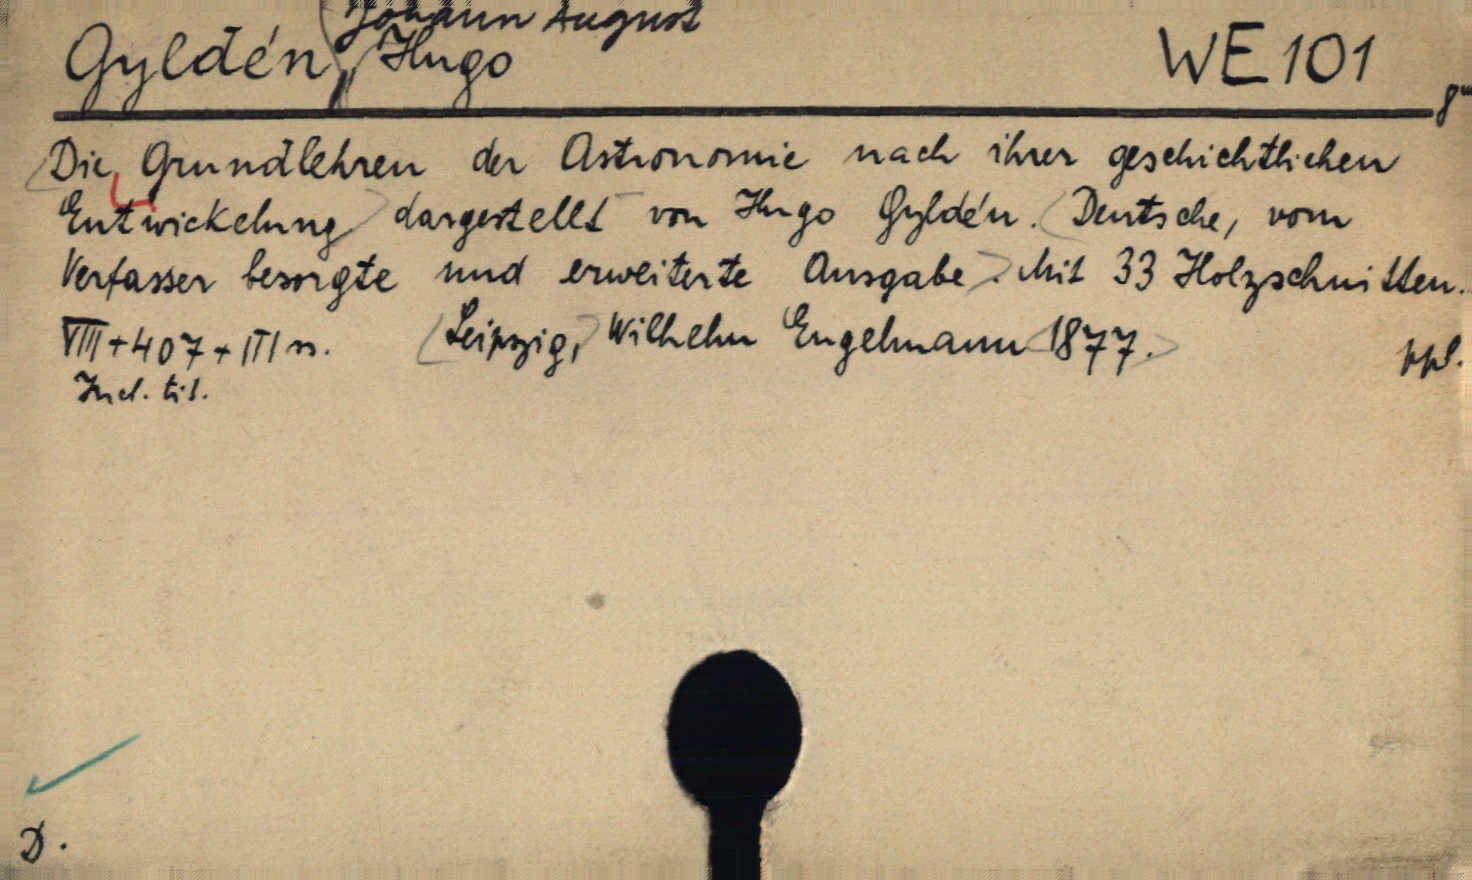 (Johann August
Gyldén, Hugo WE 101
8°
Die Grundlehren der Astronomie nach ihrer geschichtlichen
Entwickelung dargestellt von Hugo Gyldén. (Deutsche, vom
Verfasser besorgte und erweiterte Ausgabe). Mit 33 Holzschnitten.
VIII+407+III s. (Leipzig, Wilhelm Engelmann 1877.) ppl.
Incl. tit.
D.